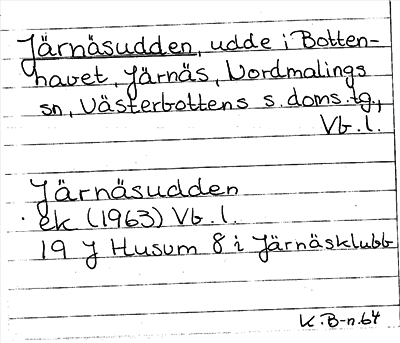 Järnäsudden, udde i Botten-
havet, Järnäs, Nordmalings
sn, Västerbottens s. doms. tg.,
Vb. l.
Järnäsudden
ek (1963) Vb. l.
19 J Husum 8 i Järnäsklubb
K. B-n. 64